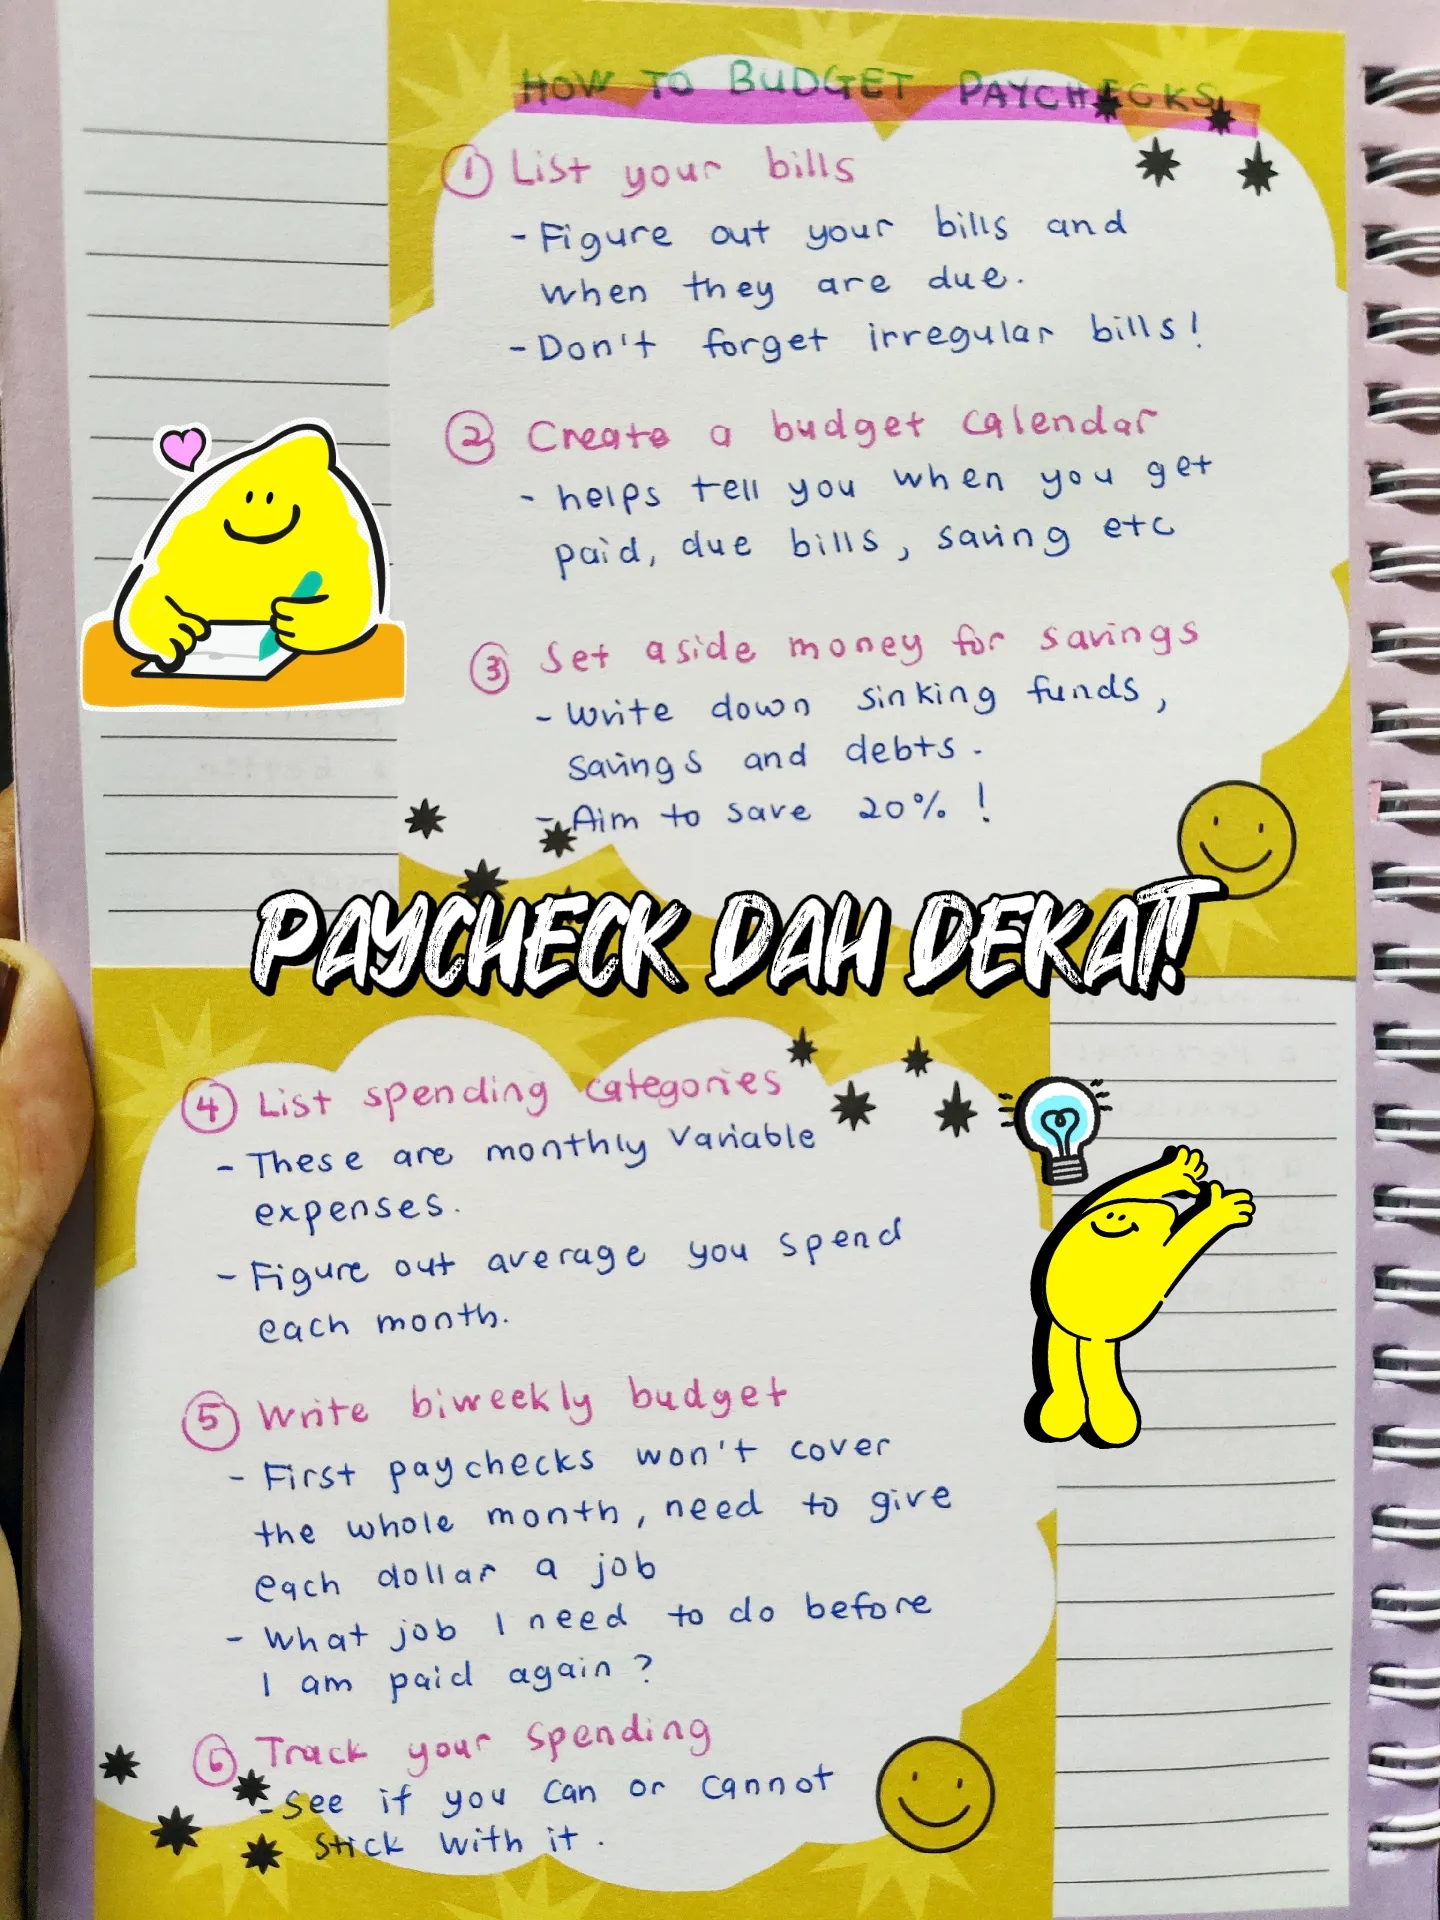 HOW TO BUDGET PAYCHECKS
① List your bills
- Figure out your bills and
when they are due.
- Don't forget irregular bills!
② Create a budget calendar
- helps tell you when you get
paid, due bills, saving etc
③ Set aside money for savings
- Write down sinking funds,
savings and debts.
- Aim to save 20% !
PAYCHECK DAH DEKAT!
④ List spending categories
- These are monthly variable
expenses.
- Figure out average you spend
each month.
⑤ Write biweekly budget
- First paychecks won't cover
the whole month, need to give
each dollar a job
- What job I need to do before
I am paid again?
⑥ Track your spending
- See if you can or cannot
stick with it.